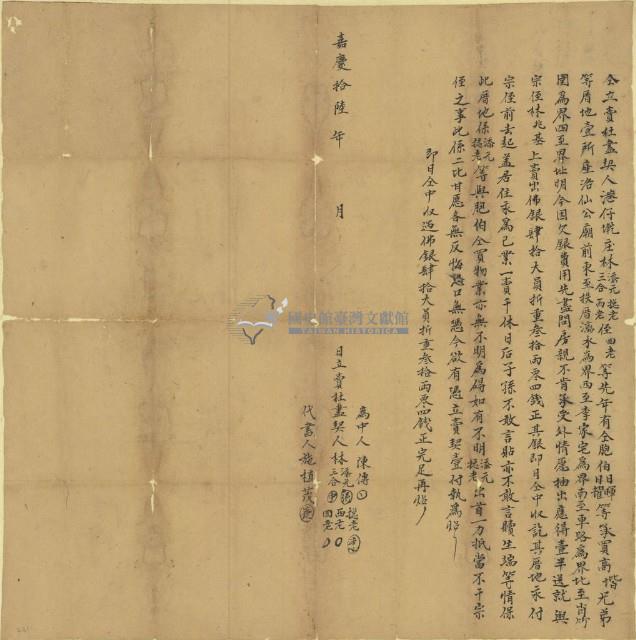 仝立賣杜盡契人港仔墘庄林添元三合捉老西老侄四老等先年有仝胞伯日暉日耀等承買高楷兄弟
等厝地壹所座洛仙公廟前東至後厝滴水為界西至李家宅為界南至車路為界北至
圍為界四至界址明今因欠銀費用先盡問房親不肯承受外情愿抽出應得壹半送就與
宗侄林兆基上賣出佛銀肆拾大員折重叁拾兩零四錢正其銀即日仝中收訖其厝地永付
宗侄前去起盖居住永為己業一賣千休日后子孫不敢言貼亦不敢言贖生端等情保
此厝地係添元捉老等與胞伯仝買物業亦無不明為碍如有不明添元捉老出首一力抵當不干宗
侄之事此係二比甘愿各無反悔恐口無憑今欲有憑立賣契壹付執為炤
即日仝中收過佛銀肆拾大員折重叁拾兩零四錢正完足再炤
嘉慶拾陸年 月 日立賣杜盡契人林添元三合捉老西老四老
為中人陳傳
代書人施植茂
國史館臺灣文獻館
TAIWAN HISTORICA